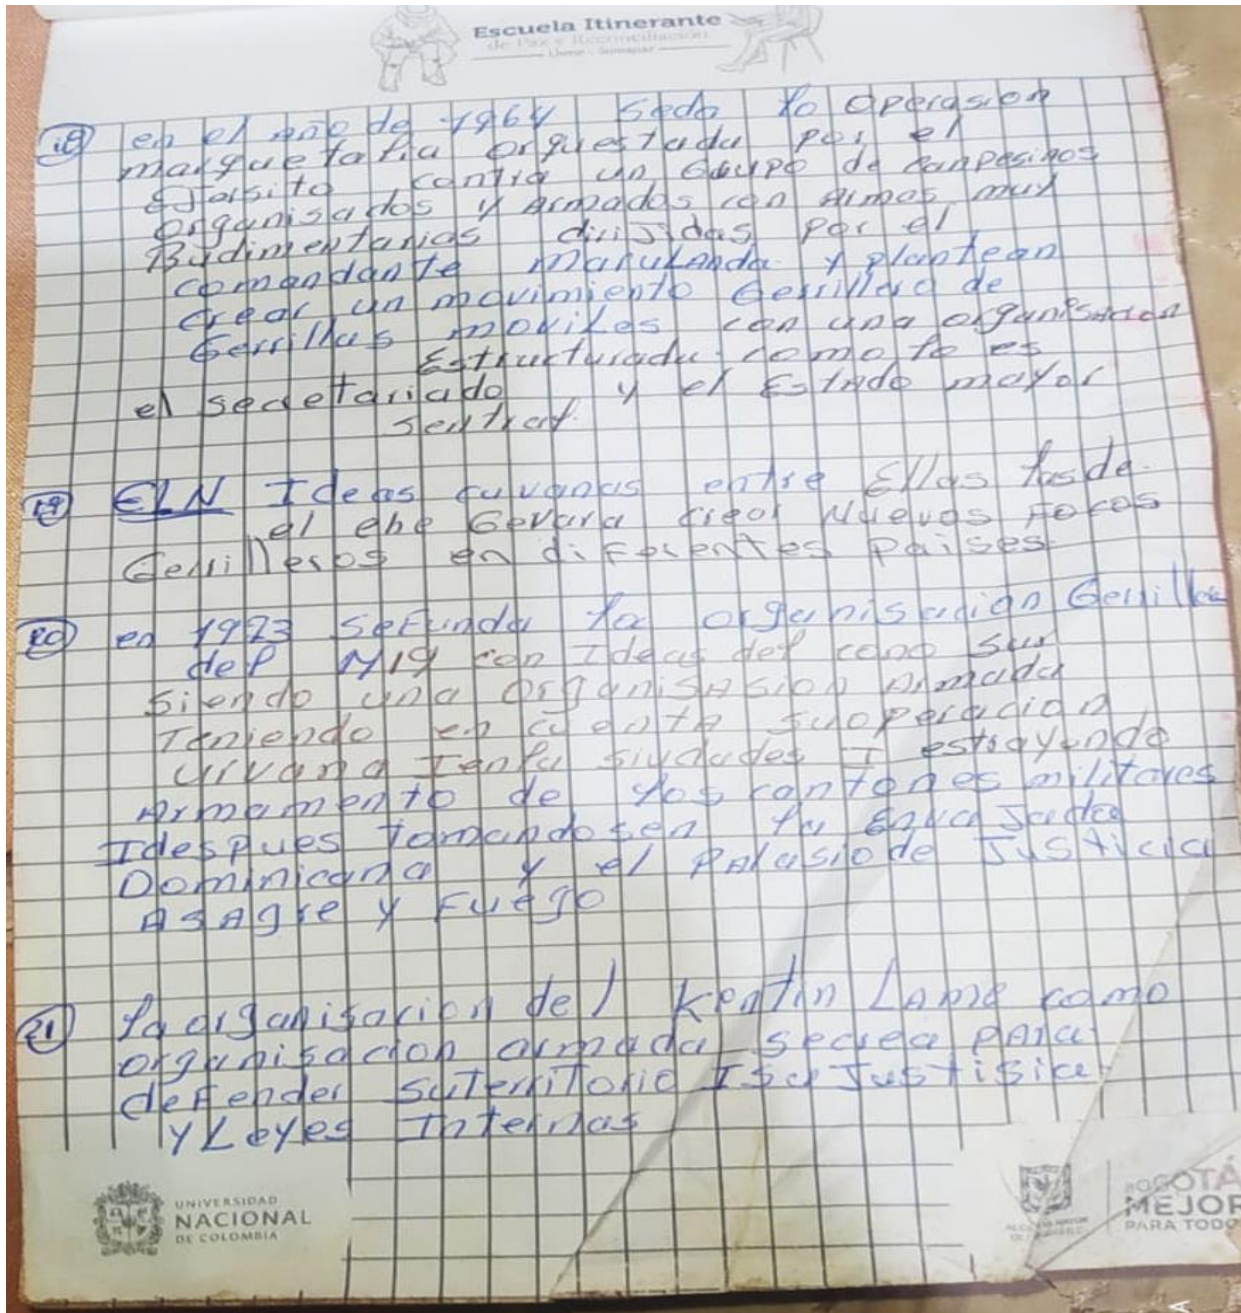 Escuela Itinerante
de Paz y Reconciliación
Usme - Sumapaz
18 en el año de 1964 seda la operasion
marquetalia orquestada por el
Ejersito contra un Gruupo de canpesinos
organisados y Armados con Armas muy
Rudimentarias dirijidas por el
comandante marulanda y plantean
crear un movimiento Gerrillero de
Gerrillas moviles con una organisacion
Estructurada como lo es
el secretariado y el Estado mayor
sentral.
19 ELN Ideas cuvanas entre Ellas las de
el che Gevara crear Nuevos Focos
Gerrilleros en diferentes paises
20 en 1973 seFunda la organisación Gerrilla
del M19 con Ideas del cono sur
siendo una organisasion Armada
Teniendo en cuenta suoperacion
urvana Ienla siudades I estrayendo
Armamento de los cantones militares
Idespues tomandosen la Envajada
Dominicana y el PAlasio de Justicia
Asagre y Fuego
21 la organisacion del kentin LAme como
organisacion armada secrea pAra
defender suterritorio Isu Justisica
y Leyes Internas
UNIVERSIDAD
NACIONAL
DE COLOMBIA
ALCALDÍA MAYOR
DE BOGOTÁ D.C.
BOGOTÁ
MEJOR
PARA TODOS